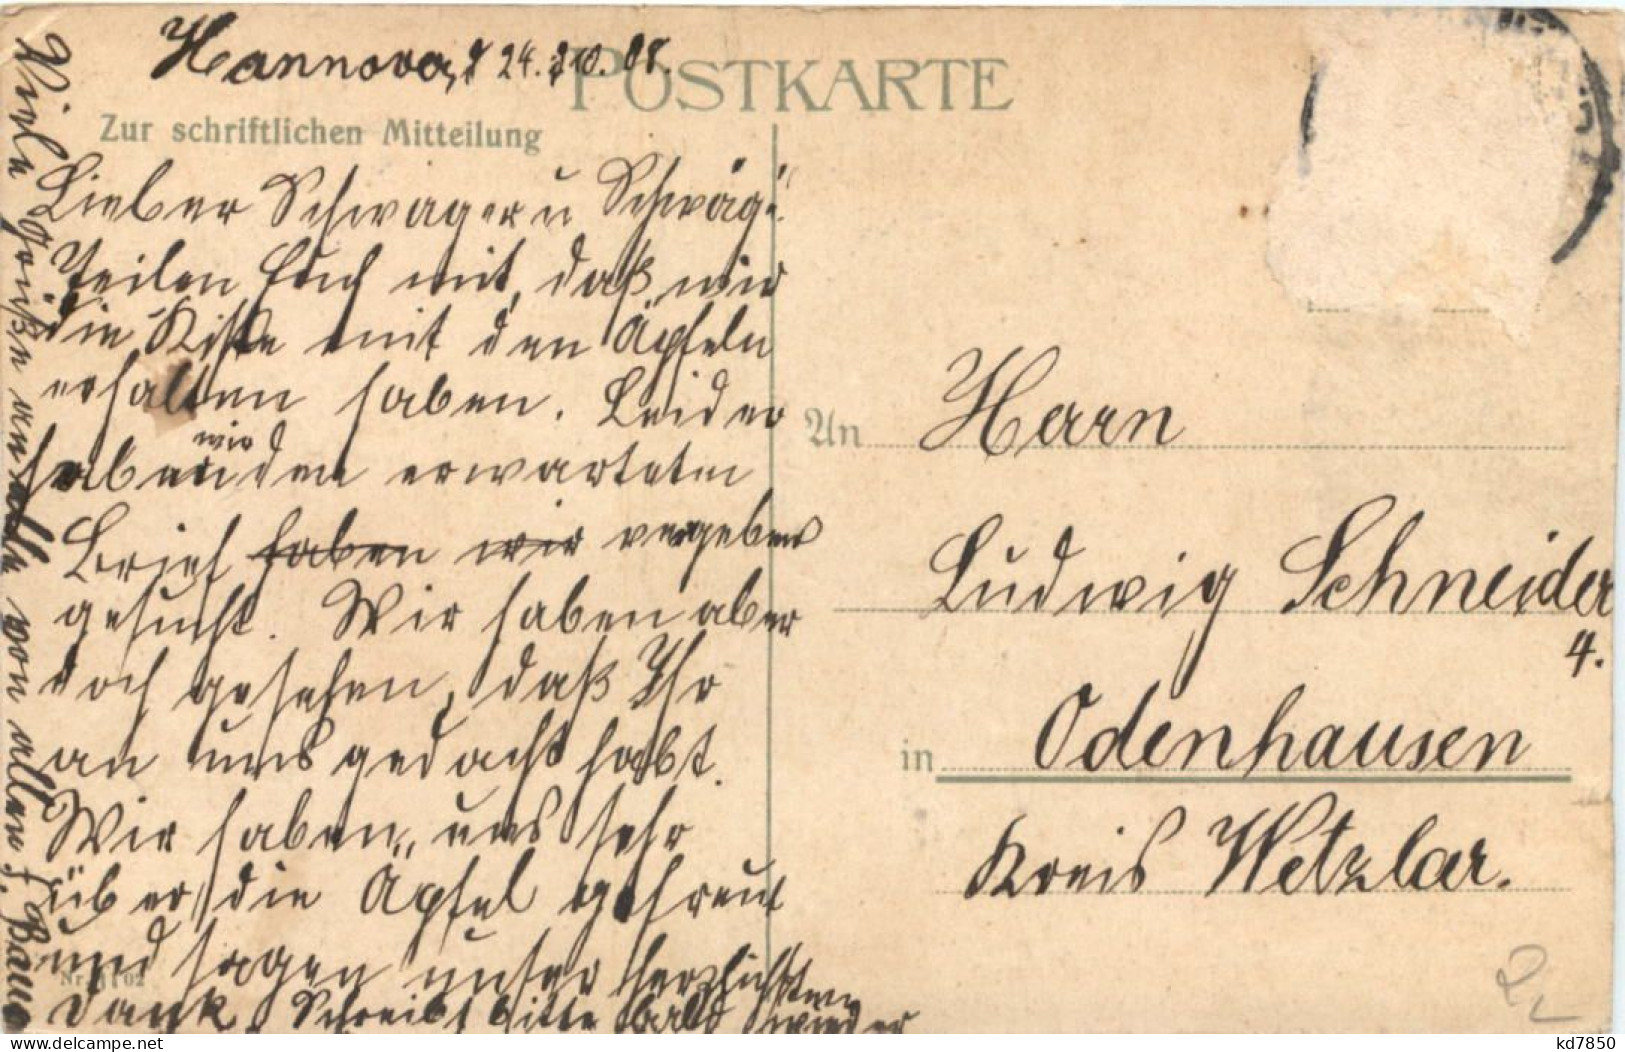 Hannover, d 24.10.08.
POSTKARTE
Zur schriftlichen Mitteilung
Lieber Schwager u Schwäg.
Teilen Euch mit, daß wir
die Kiste mit den Äpfeln
erhalten haben. Leider
haben wir den erwarteten
Brief haben wir vergebens
gesucht. Wir haben aber
doch gesehen, daß Ihr
an uns gedacht habt.
Wir haben uns sehr
über die Äpfel gefreut
und sagen unser herzlichsten
Dank. Schreibt bitte bald wieder
Viele Grüße an alle von allen
An Herrn
Ludwig Schneider
4.
in Odenhausen
Kreis Wetzlar.
kd7850